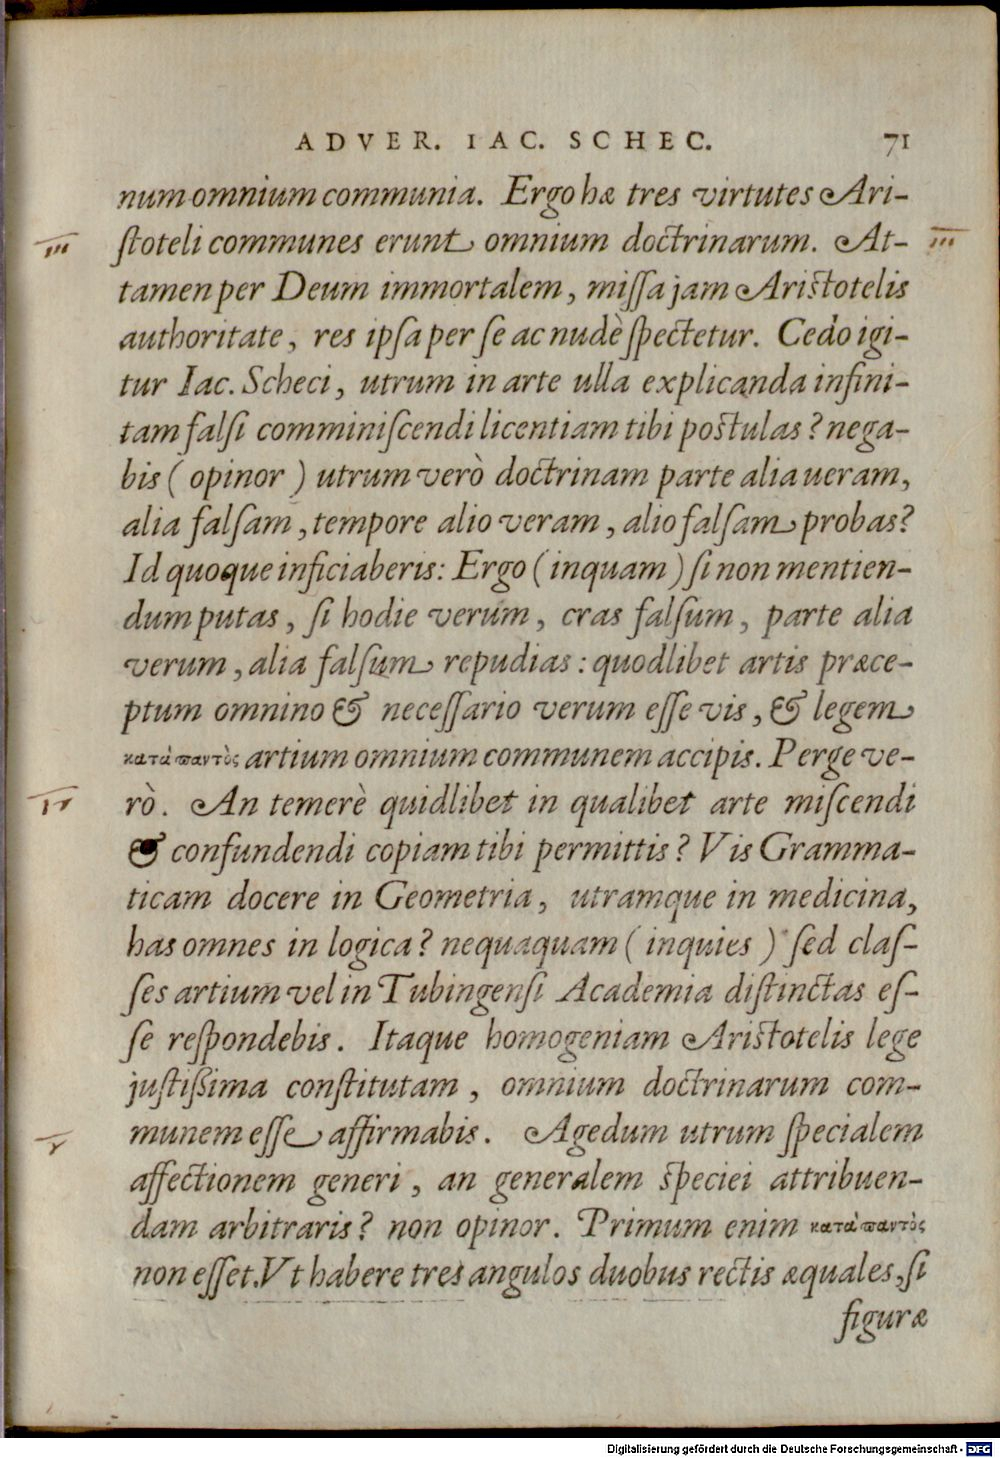 ADVER. IAC. SCHEC. 71
num omnium communia. Ergo hæ tres virtutes Ari-
ſtoteli communes erunt omnium doctrinarum. At-
III
III
tamen per Deum immortalem, miſſa jam Ariſtotelis
authoritate, res ipſa per ſe ac nudè ſpectetur. Cedo igi-
tur Iac. Scheci, utrum in arte ulla explicanda infini-
tam falſi comminiſcendi licentiam tibi poſtulas? nega-
bis (opinor) utrum verò doctrinam parte alia ueram,
alia falſam, tempore alio veram, alio falſam probas?
Id quoque inficiaberis: Ergo (inquam) ſi non mentien-
dum putas, ſi hodie verum, cras falſum, parte alia
verum, alia falſum repudias: quodlibet artis præce-
ptum omnino & neceſſario verum eſſe vis, & legem
κατὰ παντὸς artium omnium communem accipis. Perge ve-
rò. An temerè quidlibet in qualibet arte miſcendi
& confundendi copiam tibi permittis? Vis Gramma-
ticam docere in Geometria, utramque in medicina,
has omnes in logica? nequaquam (inquies) ſed claſ-
ſes artium vel in Tubingenſi Academia diſtinctas eſ-
ſe reſpondebis. Itaque homogeniam Ariſtotelis lege
juſtißima conſtitutam, omnium doctrinarum com-
munem eſſe affirmabis. Agedum utrum ſpecialem
V
affectionem generi, an generalem ſpeciei attribuen-
dam arbitraris? non opinor. Primum enim κατὰ παντὸς
non eſſet. Vt habere tres angulos duobus rectis æquales, ſi
figuræ
Digitalisierung gefördert durch die Deutsche Forschungsgemeinschaft - DFG